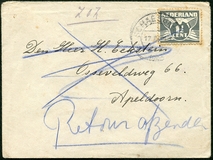 212
NEDERLAND
1½
CENT
Den Heer H. Eckstein
Osseveldweg 66.
Apeldoorn.
Retour afzender